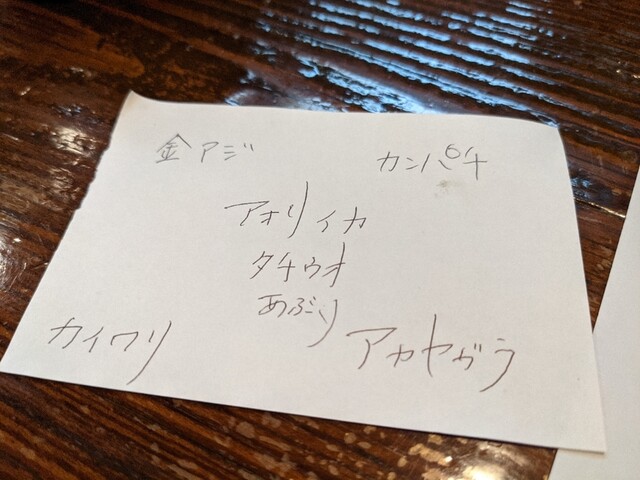 金アジ
カンパチ
アオリイカ
タチウオ
あぶり
カイワリ
アカヤガラ